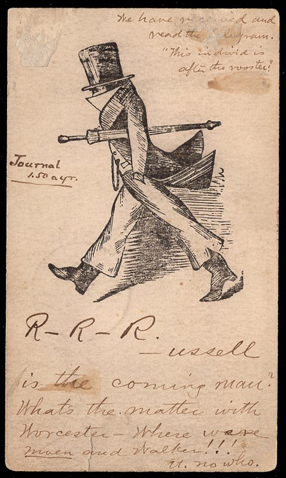 We have received and
read the telegram.
"This individ is
after the rooster"
Journal
1.50 a yr.
R-R-R.
-ussell
is the coming man?
Whats the matter with
Worcester - Where were
and Walker!!!
U. no who.